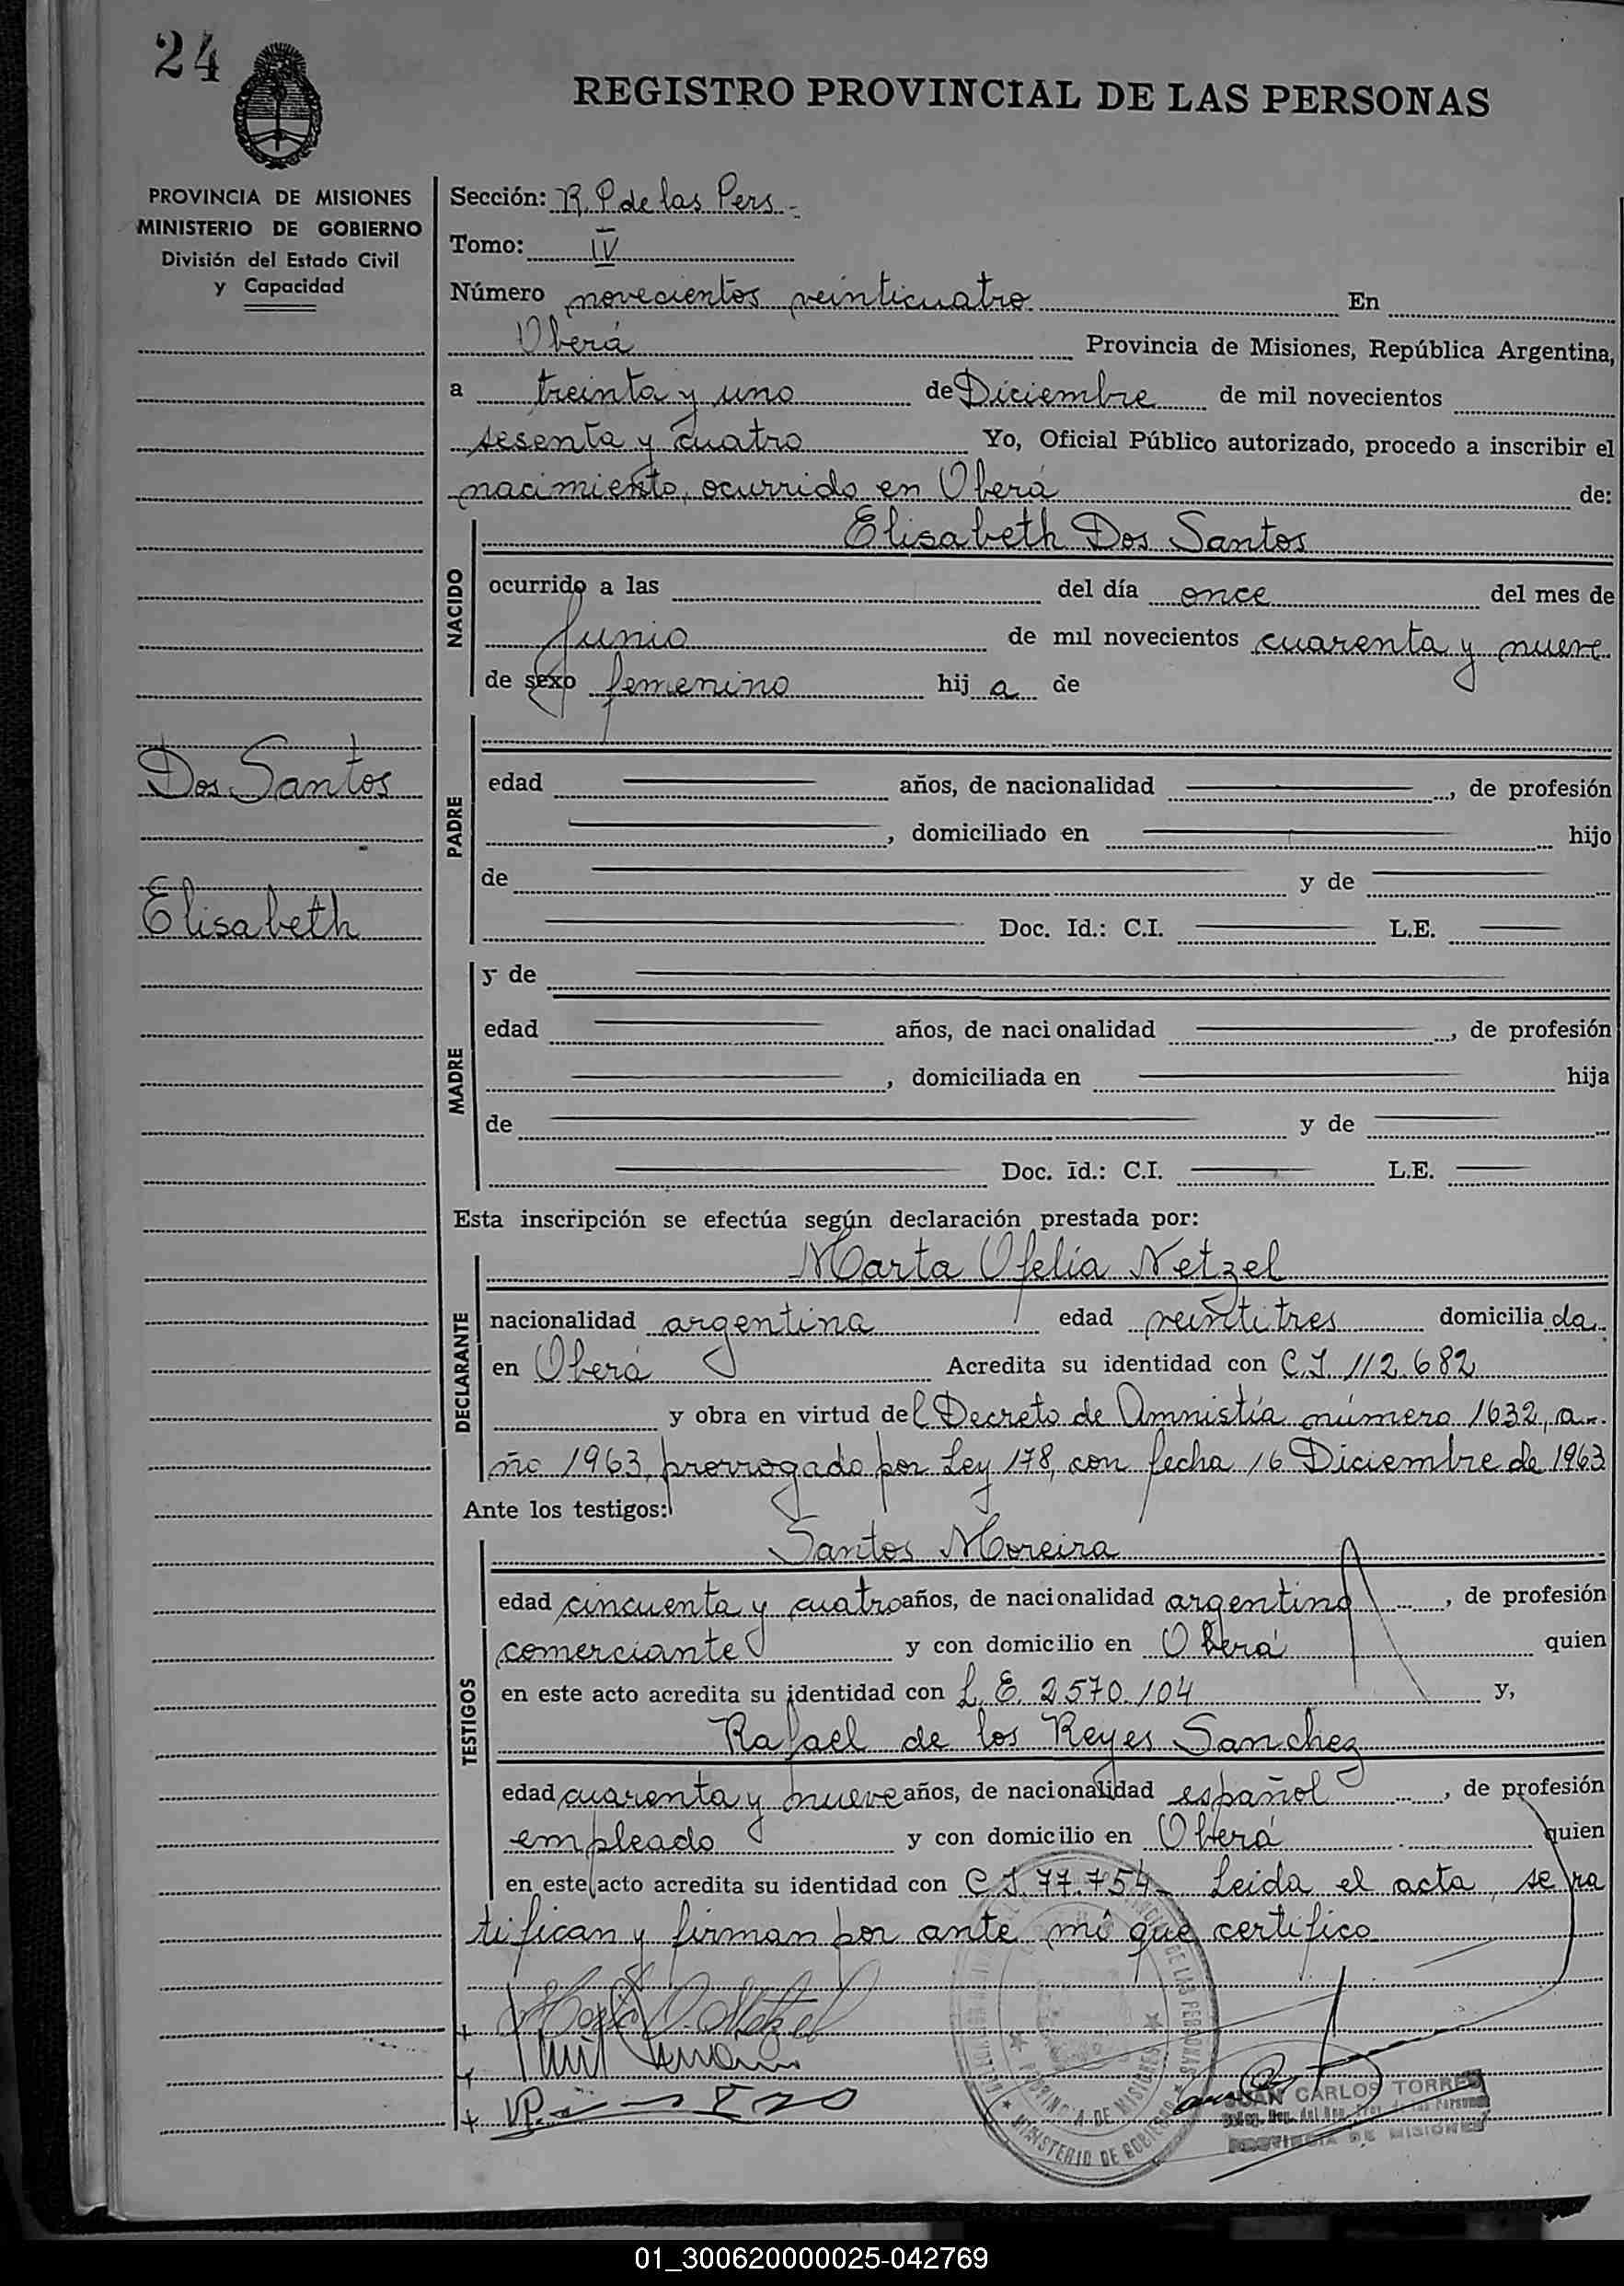 24
REGISTRO PROVINCIAL DE LAS PERSONAS
PROVINCIA DE MISIONES
MINISTERIO DE GOBIERNO
División del Estado Civil
y Capacidad
Sección: R. P. de las Pers.-
Tomo: IV
Número novecientos veinticuatro En
Oberá Provincia de Misiones, República Argentina,
a treinta y uno de Diciembre de mil novecientos
sesenta y cuatro Yo, Oficial Público autorizado, procedo a inscribir el
nacimiento, ocurrido en Oberá de:
NACIDO
Elisabeth Dos Santos
ocurrido a las del día once del mes de
Junio de mil novecientos cuarenta y nueve
de sexo femenino hij a de
Dos Santos
Elisabeth
PADRE
edad años, de nacionalidad , de profesión
, domiciliado en hijo
de y de
Doc. Id.: C.I. L.E.
MADRE
y de
edad años, de naci onalidad , de profesión
, domiciliada en hija
de y de
Doc. Id.: C.I. L.E.
Esta inscripción se efectúa según declaración prestada por:
DECLARANTE
Marta Ofelia Netzel
nacionalidad argentina edad veintitres domicilia da
en Oberá Acredita su identidad con C.I. 112.682
y obra en virtud de l Decreto de Amnistía número 1632, a-
ño 1963, prorrogado por Ley 178, con fecha 16 Diciembre de 1963
Ante los testigos:
TESTIGOS
Santos Moreira
edad cincuenta y cuatro años, de nacionalidad argentino , de profesión
comerciante y con domicilio en Oberá quien
en este acto acredita su identidad con L. E. 2.570.104 y,
Rafael de los Reyes Sanchez
edad cuarenta y nueve años, de nacionalidad español , de profesión
empleado y con domicilio en Oberá quien
en este acto acredita su identidad con C.I. 77.754- Leida el acta, se ra
tifican y firman por ante mí que certifico
Marta O. Netzel
DE LAS PERSONAS
PROVINCIA DE MISIONES
MINISTERIO DE GOBIERNO
JUAN CARLOS TORRES
PROVINCIA DE MISIONES
01_300620000025-042769